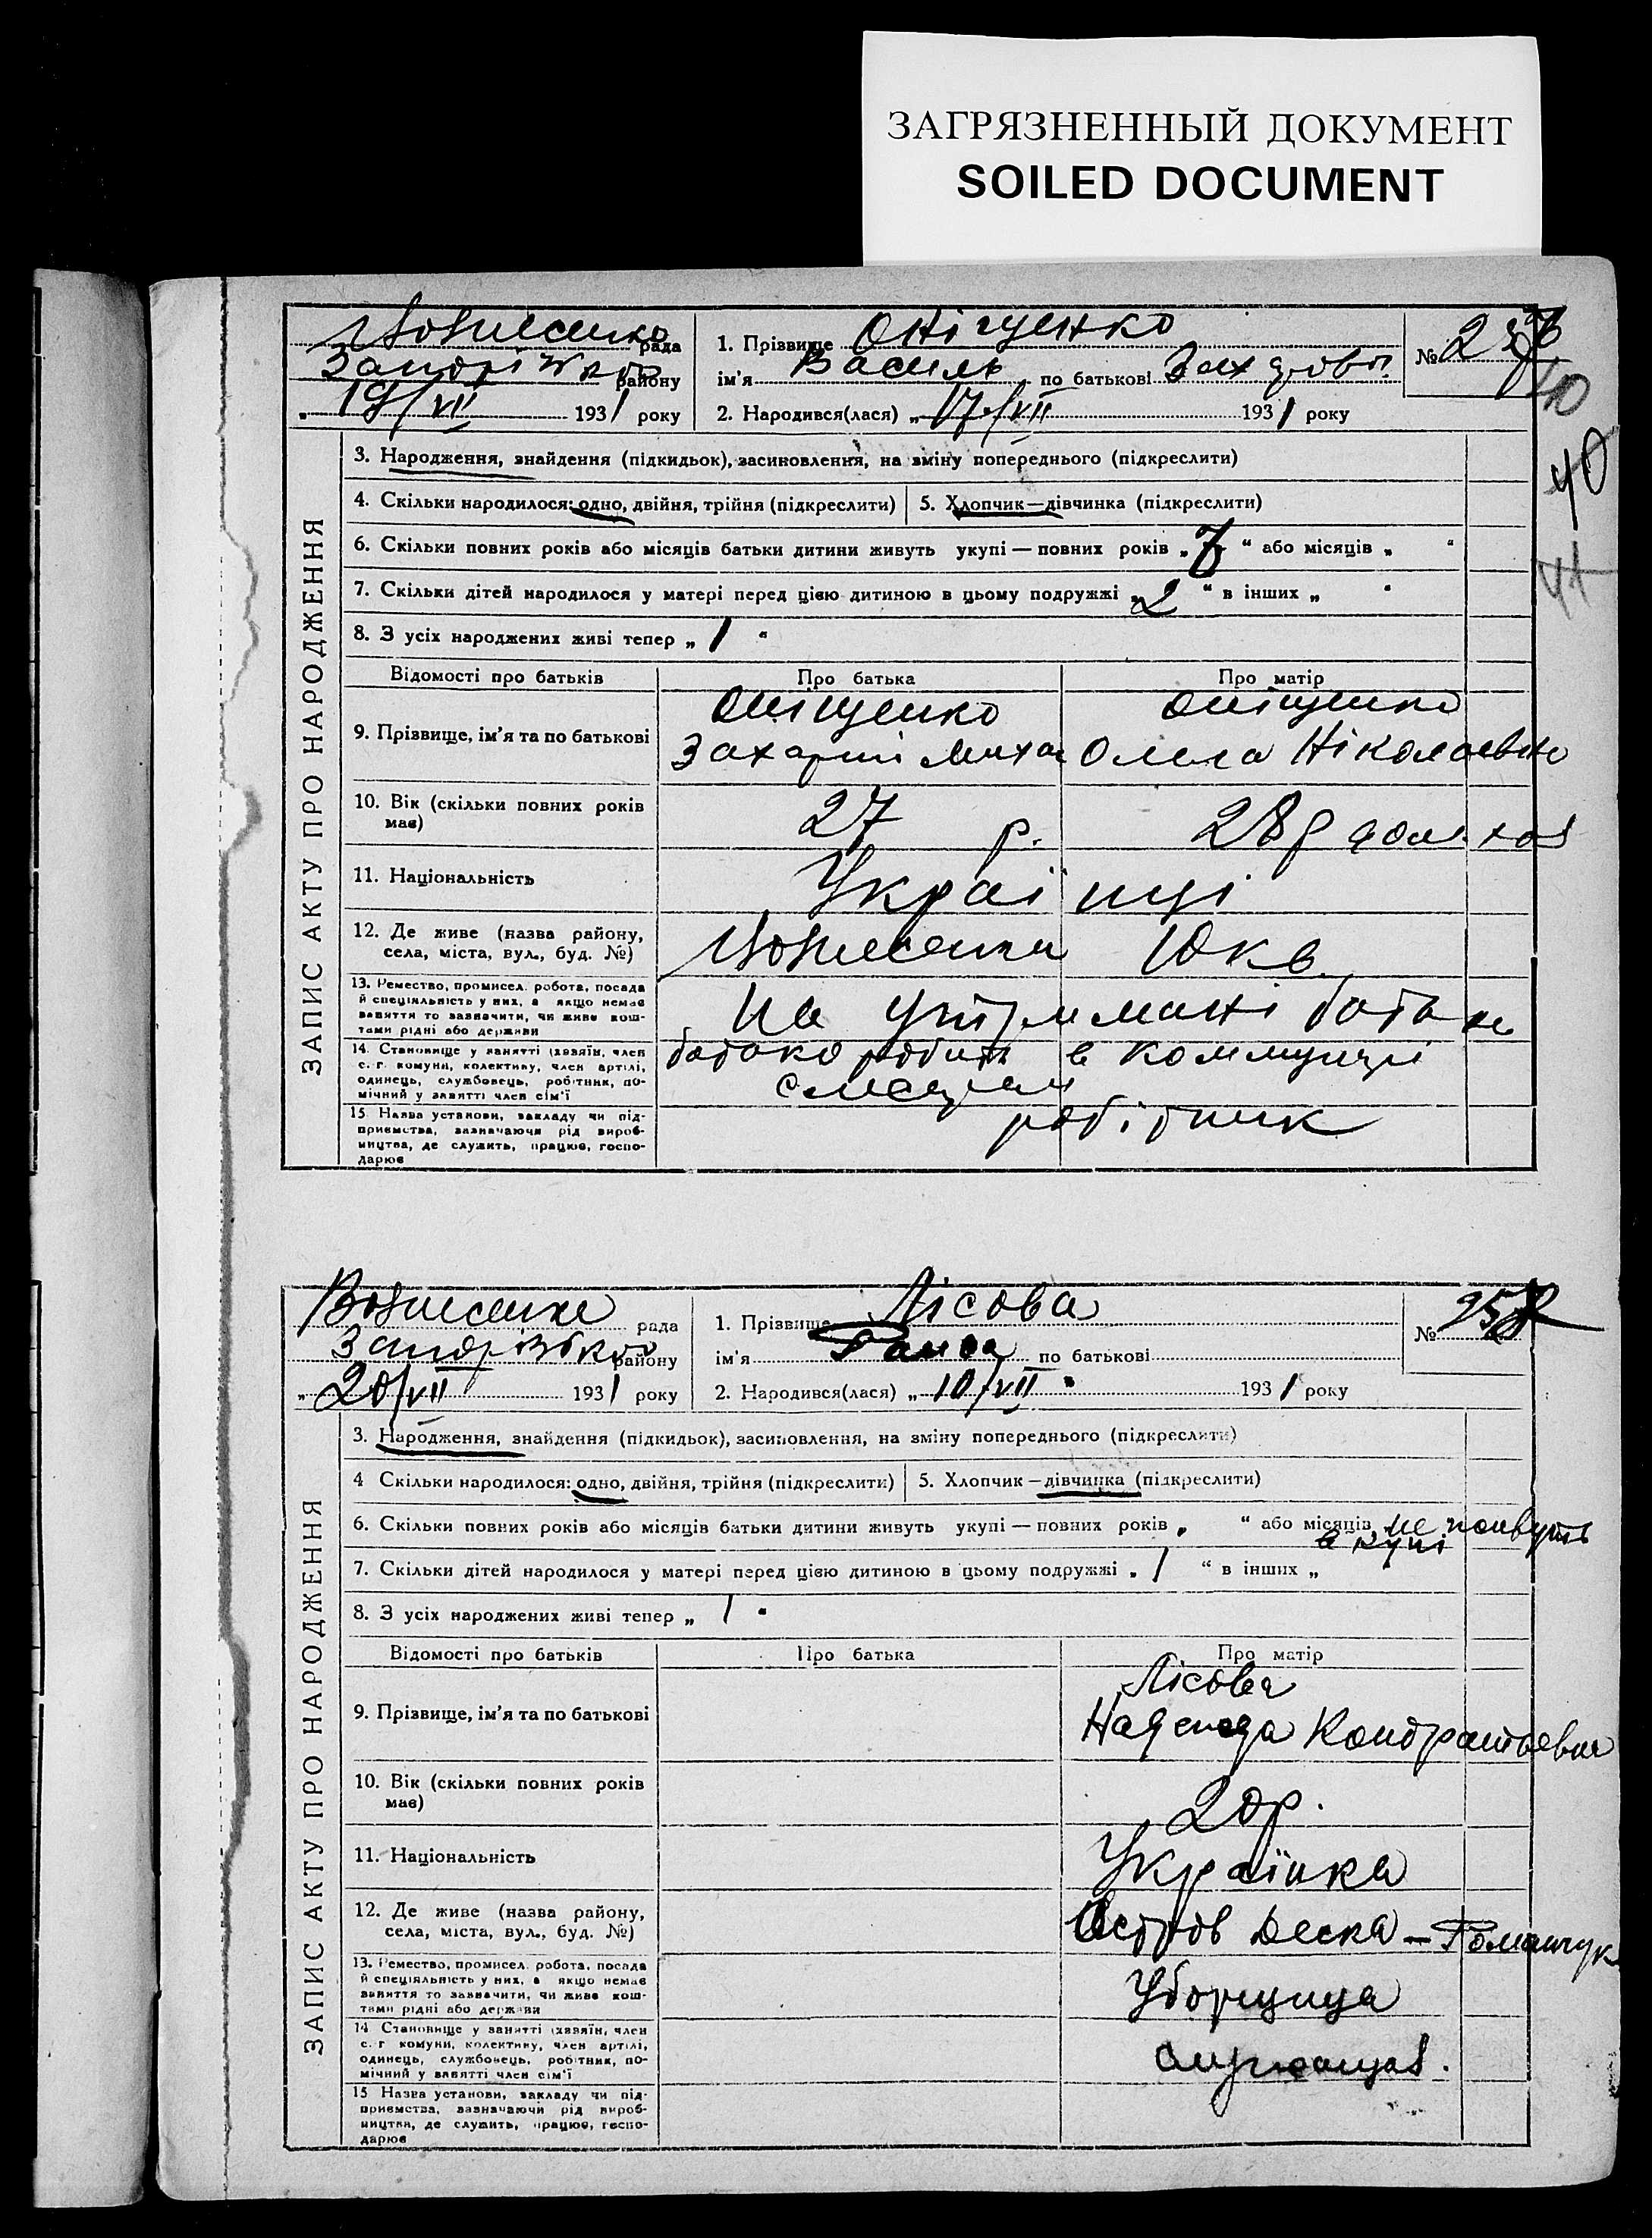 ЗАГРЯЗНЕННЫЙ ДОКУМЕНТ
SOILED DOCUMENT
рада
району
19/VII 1931 року
1. Прізвище Оніщенко
ім'я Василь по батькові
2. Народився(лася) „ 17/VII 1931 року
№
40
40
41
ЗАПИС АКТУ ПРО НАРОДЖЕННЯ
3. Народження, знайдення (підкидьок), засиновлення, на зміну попереднього (підкреслити)
4. Скільки народилося: одно, двійня, трійня (підкреслити) 5. Хлопчик—дівчинка (підкреслити)
6. Скільки повних років або місяців батьки дитини живуть укупі — повних років „ 7 “ або місяців „ “
7. Скільки дітей народилося у матері перед цією дитиною в цьому подружжі „ 2 “ в інших „ “
8. З усіх народжених живі тепер „ 1 “
Відомості про батьків Про батька Про матір
9. Прізвище, ім'я та по батькові
Оніщенко Оніщенко
Захарий Миха Ольга Ніколаевна
10. Вік (скільки повних років має) 27 р. 28 р
11. Національність Українці
12. Де живе (назва району, села, міста, вул., буд. №) Вознесенка 10 кв.
13. Ремество, промисел. робота, посада й спеціяльність у них, а якщо немає заняття то зазначити, чи живе коштами рідні або держави
На утримані батька
14. Становище у занятті (хазяїн, член с.-г. комуни, колективу, член артілі, одинець, службовець, робітник, помічний у занятті член сім'ї
батько робить в
15 Назва установи, закладу чи підприємства, зазначаючи рід виробництва, де служить, працює, господарює
робітник
Вознесенка рада
Запорізького району
„ 20/VII 1931 року
1. Прізвище Лісова
ім'я Раиса по батькові
2. Народився(лася) „ 10/VII “ 1931 року
№ 258
ЗАПИС АКТУ ПРО НАРОДЖЕННЯ
3. Народження, знайдення (підкидьок), засиновлення, на зміну попереднього (підкреслити)
4 Скільки народилося: одно, двійня, трійня (підкреслити) 5. Хлопчик — дівчинка (підкреслити)
6. Скільки повних років або місяців батьки дитини живуть укупі — повних років „ “ або місяців не
в купі
7. Скільки дітей народилося у матері перед цією дитиною в цьому подружжі „ 1 “ в інших „
8. З усіх народжених живі тепер „ 1 “
Відомості про батьків Про батька Про матір
9. Прізвище, ім'я та по батькові
Лісова
Надежда Кондратьевна
10. Вік (скільки повних років має) 20 р.
11. Національність Українка
12. Де живе (назва району, села, міста, вул., буд. №) Остров
13. Ремество, промисел. робота, посада й спеціяльність у них, а якщо немає заняття то зазначити, чи живе коштами рідні або держави
Уборщица
14 Становище у занятті (хазяїн, член с.-г комуни, колективу, член артілі, одинець, службовець, робітник, помічний у занятті член сім'ї
служащая.
15 Назва установи, закладу чи підприємства, зазначаючи рід виробництва, де служить, працює, господарює